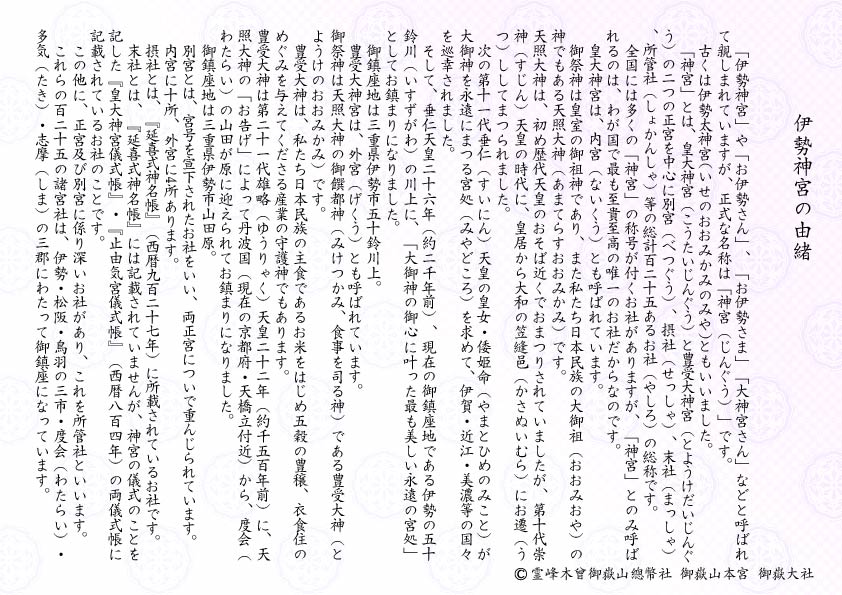 伊勢神宮の由緒
「伊勢神宮」や「お伊勢さん」、「お伊勢さま」「大神宮さん」などと呼ばれ
て親しまれていますが、正式な名称は「神宮（じんぐう）」です。
古くは伊勢太神宮（いせのおおみかみのみや）ともいいました。
「神宮」とは、皇大神宮（こうたいじんぐう）と豊受大神宮（とようけだいじんぐ
う）の二つの正宮を中心に別宮（べつぐう）、摂社（せっしゃ）、末社（まっしゃ）
、所管社（しょかんしゃ）等の総計百二十五あるお社（やしろ）の総称です。
全国には多くの「神宮」の称号が付くお社がありますが、「神宮」とのみ呼ば
れるのは、わが国で最も至貴至高の唯一のお社だからなのです。
皇大神宮は、内宮（ないくう）とも呼ばれています。
御祭神は皇室の御祖神であり、また私たち日本民族の大御祖（おおみおや）の
神でもある天照大神（あまてらすおおみかみ）です。
天照大神は、初め歴代天皇のおそば近くでおまつりされていましたが、第十代崇
神（すじん）天皇の時代に、皇居から大和の笠縫邑（かさぬいむら）にお遷（う
つ）ししてまつられました。
次の第十一代垂仁（すいにん）天皇の皇女・倭姫命（やまとひめのみこと）が
大御神を永遠にまつる宮処（みやどころ）を求めて、伊賀・近江・美濃等の国々
を巡幸されました。
そして、垂仁天皇二十六年（約二千年前）、現在の御鎮座地である伊勢の五十
鈴川（いすずがわ）の川上に、「大御神の御心に叶った最も美しい永遠の宮処」
としてお鎮まりになりました。
御鎮座地は三重県伊勢市五十鈴川上。
豊受大神宮は、外宮（げくう）とも呼ばれています。
御祭神は天照大神の御饌都神（みけつかみ、食事を司る神）である豊受大神（と
ようけのおおみかみ）です。
豊受大神は、私たち日本民族の主食であるお米をはじめ五穀の豊穣、衣食住の
めぐみを与えてくださる産業の守護神でもあります。
豊受大神は第二十一代雄略（ゆうりゃく）天皇二十二年（約千五百年前）に、天
照大神の「お告げ」によって丹波国（現在の京都府・天橋立付近）から、度会（
わたらい）の山田が原に迎えられてお鎮まりになりました。
御鎮座地は三重県伊勢市山田原。
別宮とは、宮号を宣下されたお社をいい、両正宮についで重んじられています。
内宮に十所、外宮に4所あります。
摂社とは、『延喜式神名帳』（西暦九百二十七年）に所載されているお社です。
末社とは、『延喜式神名帳』には記載されていませんが、神宮の儀式のことを
記した『皇大神宮儀式帳』・『止由気宮儀式帳』（西暦八百四年）の両儀式帳に
記載されているお社のことです。
この他に、正宮及び別宮に係り深いお社があり、これを所管社といいます。
これらの百二十五の諸宮社は、伊勢・松阪・鳥羽の三市・度会（わたらい）・
多気（たき）・志摩（しま）の三郡にわたって御鎮座になっています。
© 霊峰木曾御嶽山總幣社 御嶽山本宮 御嶽大社